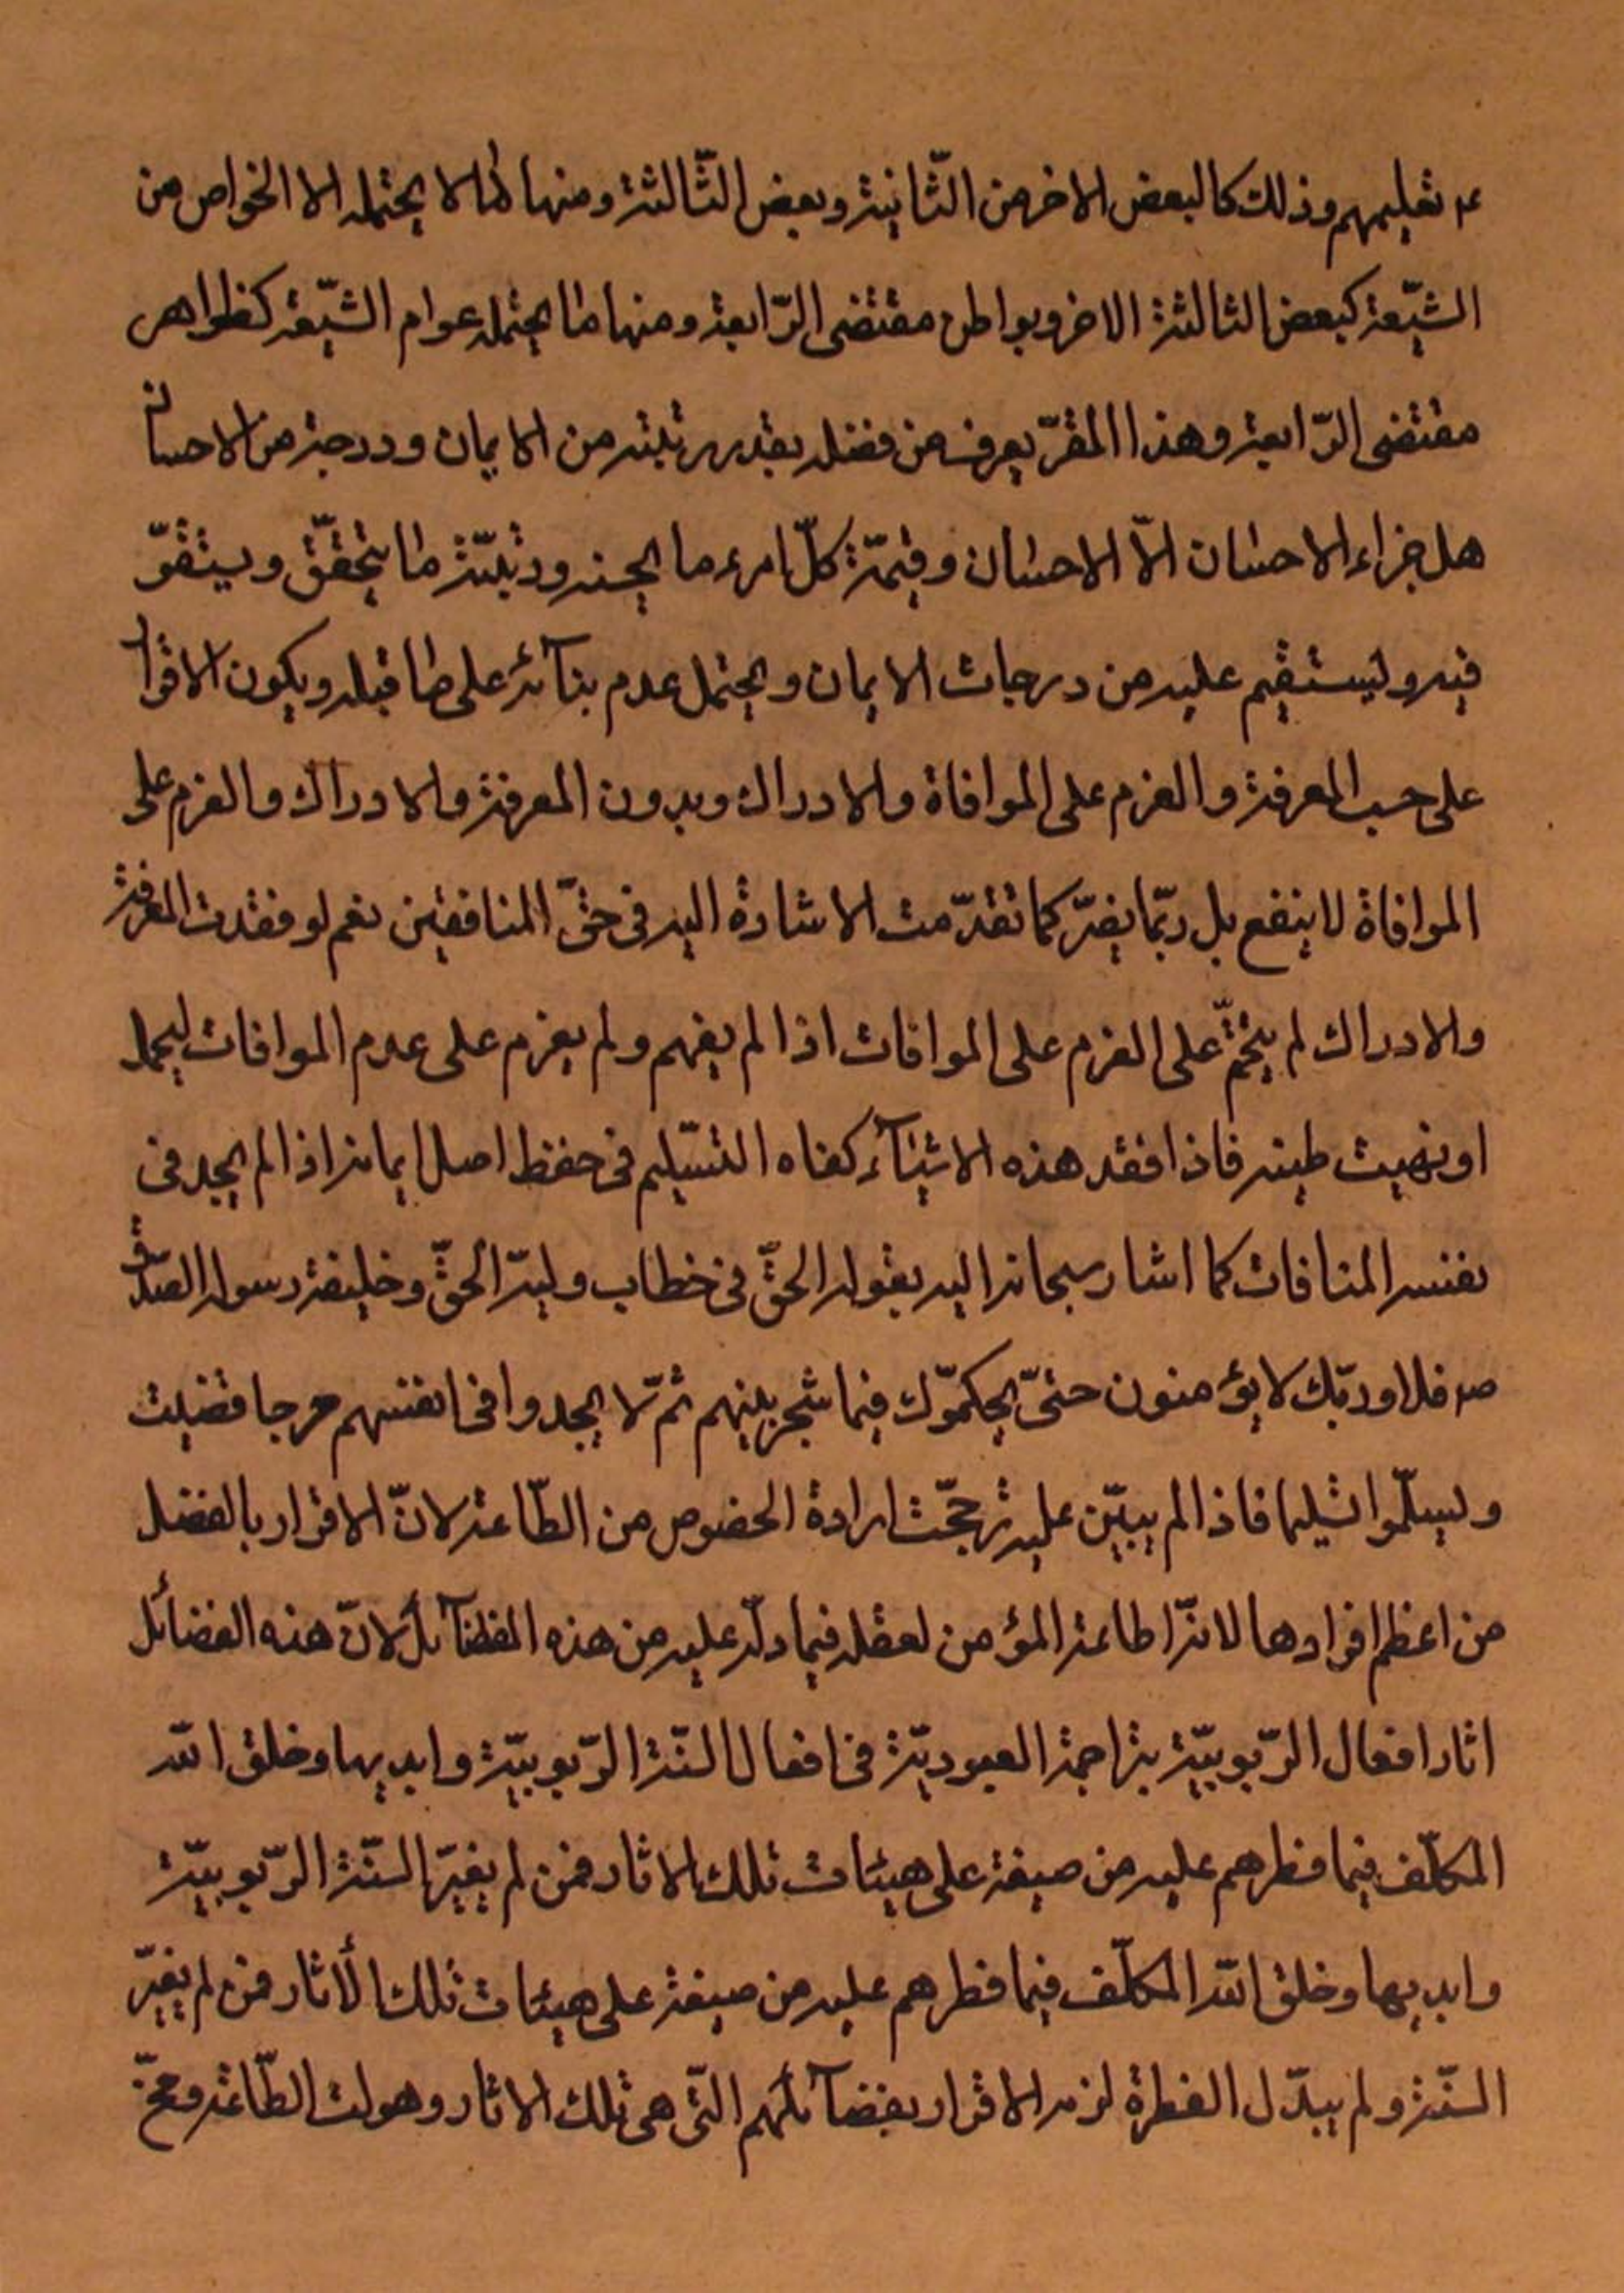 ع تعليمهم وذلك كالبعض الاخر من الثّانية وبعض الثّالثة ومنها ما لا يحتمله الا الخواص من
الشيّعة كبعض الثالثة الاخر وبواطن مقتضى الرّابعة ومنها ما يحتمله عوام الشيّعة كظواهر
مقتضى الرّابعة وهذا المقرّ يعرف من فضله بقدر رتبته من الايمان ودرجته من الاحسان
هل جزاء الاحسان الاّ الاحسان وقيمّة كلّ امرء ما يحسنه ورتبتّه ما يتحقّق ويتقوّ
فيه وليستقيم عليه من درجات الايمان ويحتمل عدم بنآئه على ما قبله ويكون الاقرا
على حسب المعرفة والعزم على الموافاة والادراك وبدون المعرفة والادراك والعزم على
الموافاة لا ينفع بل ربّما يضرّ كما تقدّمت الاشارة اليه فى حقّ المنافقين نعم لو فقدت المعرفة
والادراك لم يتحتّم على العزم على الموافات اذا لم يفهم ولم يعزم على عدم الموافات ليحمل
او نهيت طينه فاذا فقد هذه الاشيآء كفاه التسّليم فى حفظ اصل ايمانه اذا لم يجد فى
نفسه المنافات كما اشار سبحانه اليه بقوله الحقّ فى خطاب وليّه الحقّ وخليفة رسوله الصّدق
ص فلا وربّك لا يؤمنون حتىّ يحكمّوك فيما شجر بينهم ثمّ لا يجدوا فى انفسهم حرجا قضيت
ويسلّموا تسليما فاذا لم يبيّن عليه ترجحّت ارادة الخصوص من الطّاعة لانّ الاقرار بالفضل
من اعظم افرادها لانّه اطاعة المؤمن لعقله فيما دلّه عليه من هذه الفضآئل لانّ هذه الفضائل
اثار افعال الرّبوبيّة بتراجمة العبوديّة فى افعال السّنة الرّبوبيّة وايديها وخلق اللّه
المكلّف فيما فطرهم عليه من صبغة على هيئات تلك الاثار فمن لم يغيّر السّنّة الرّبوبيّة
وايديها وخلق اللّه المكلّف فيما فطرهم عليه من صبغة على هيئات تلك الأثار فمن لم يغيّر
السنّة ولم يبدّل الفطرة لزمه الاقرار بفضآئلهم التّى هى تلك الاثار وهو لت الطّاعة ومحّ